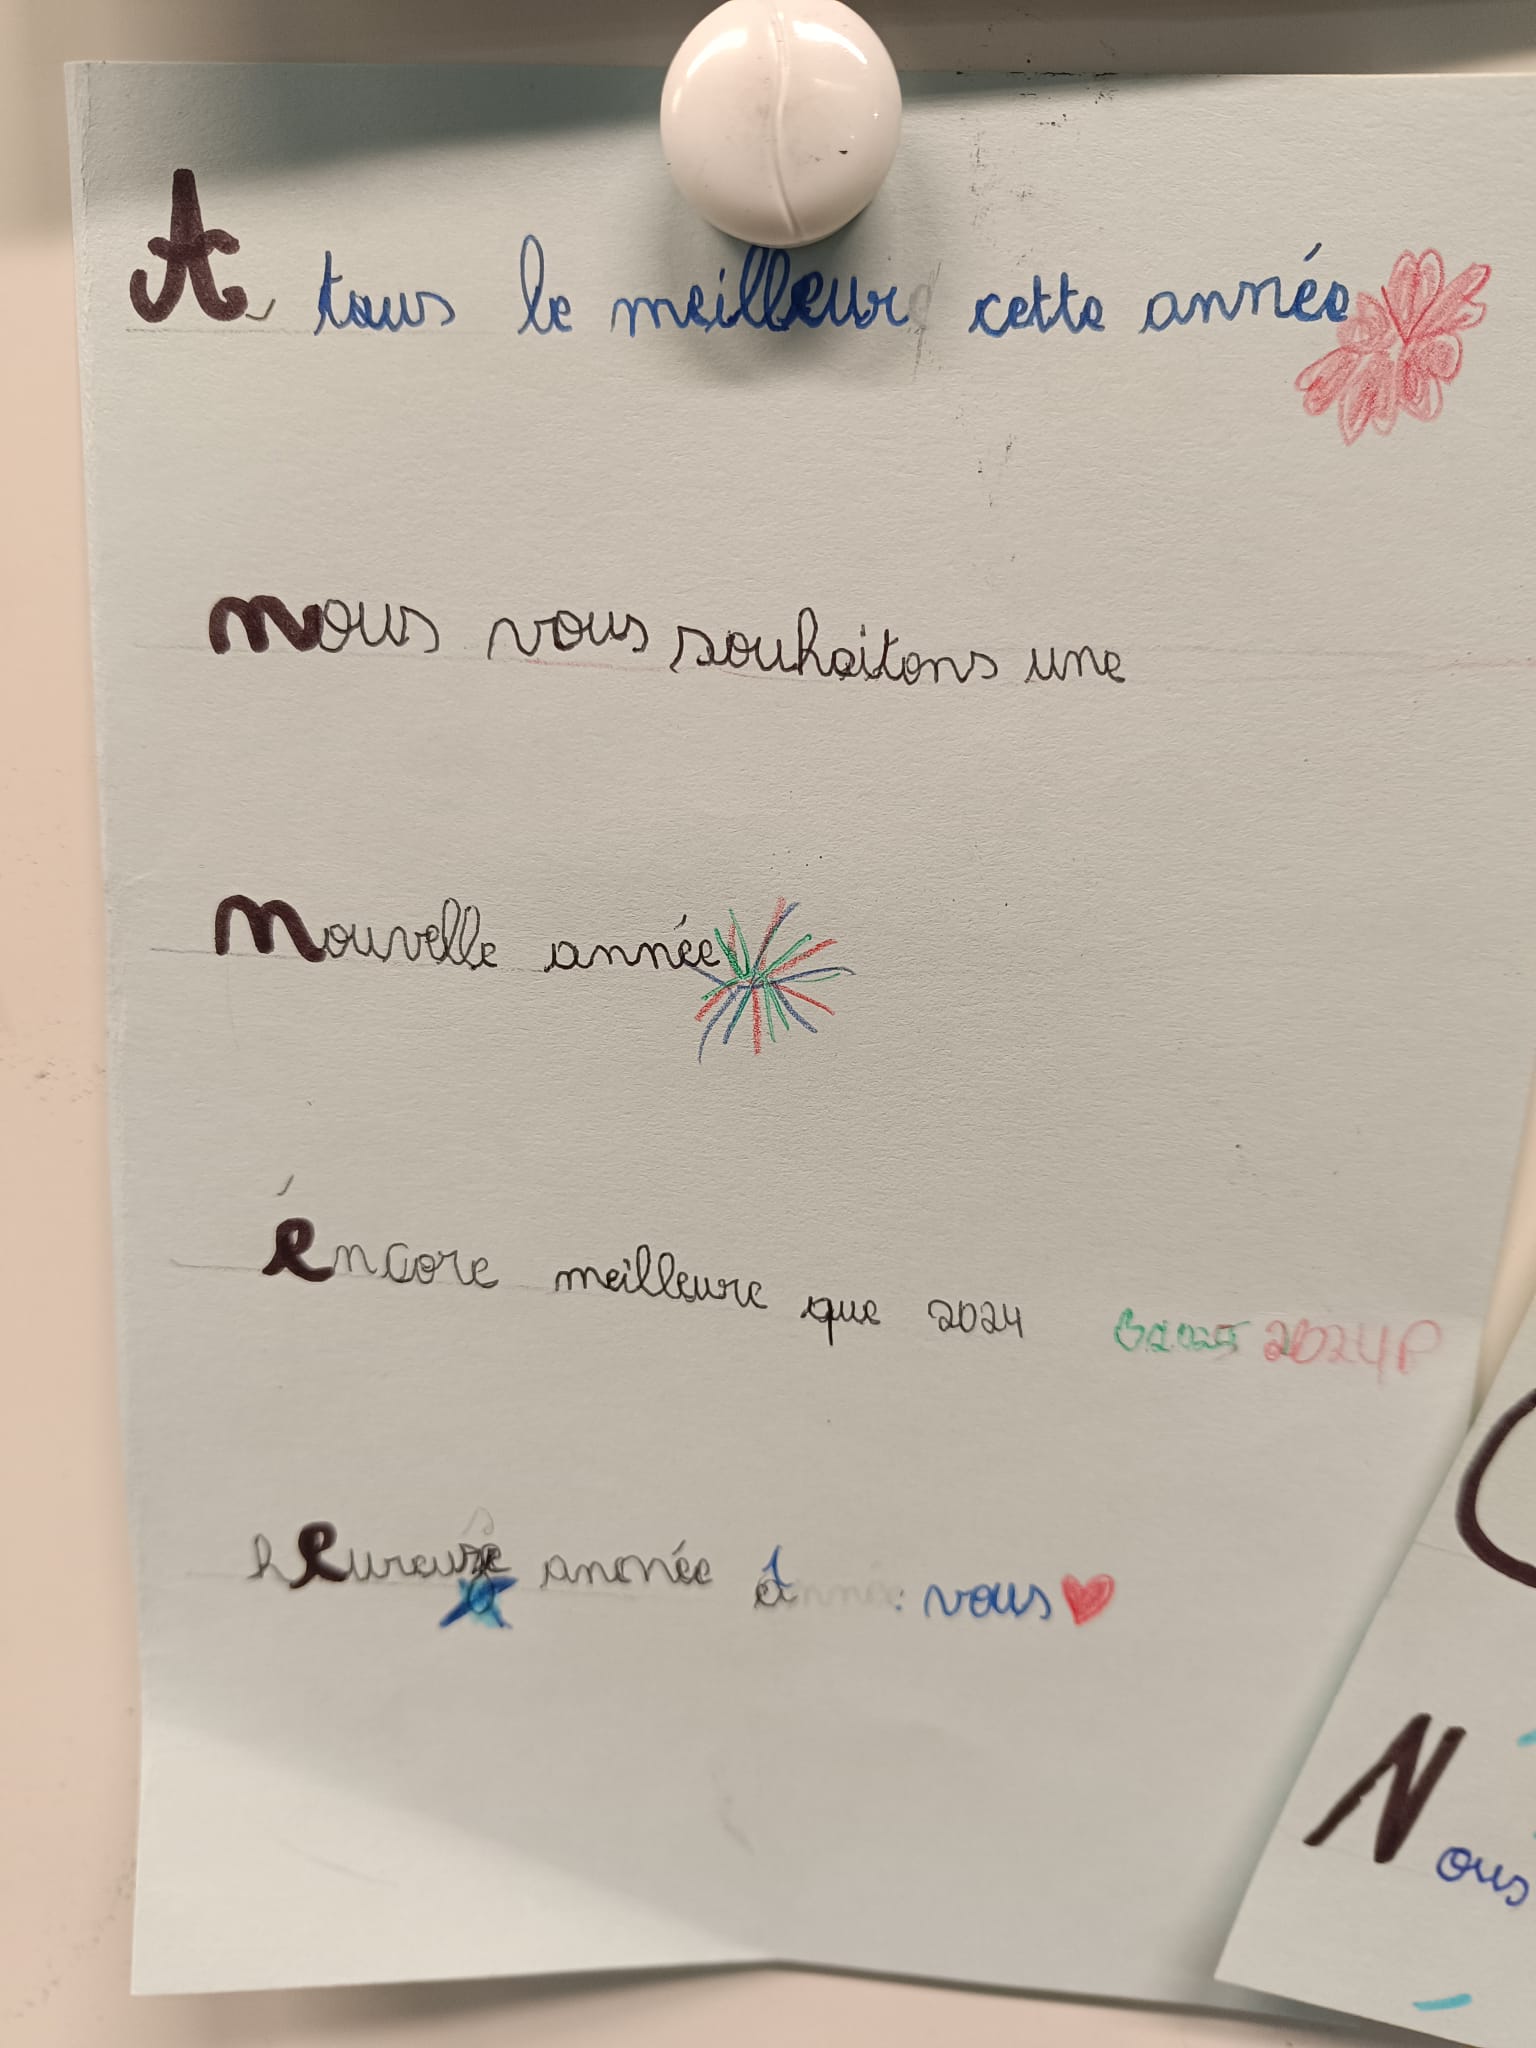 A tous le meilleur cette année
nous vous souhaitons une
nouvelle année
éncore meilleure que 2024 2024
heureuse année à vous
N
ous